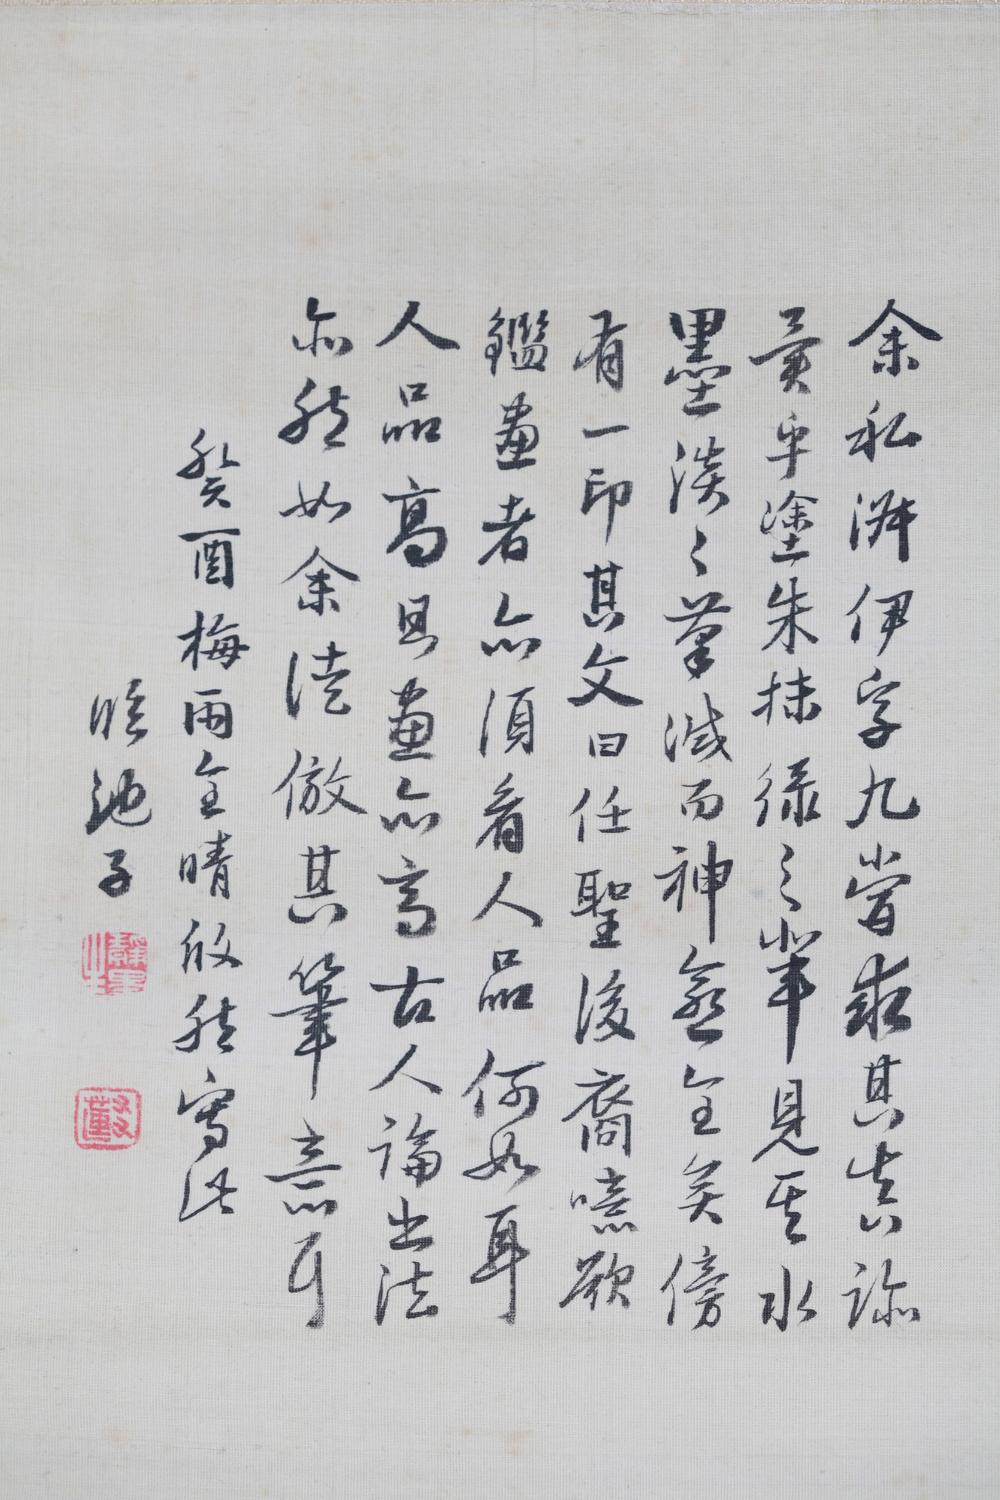 余私淑伊孚九嘗求其真跡
異乎塗朱抹綠之輩見其水
墨淡々筆減而神氣全矣傍
有一印其文曰任聖後裔噫欲
鑑畫者亦須看人品何如耳
人品高且畫亦高古人論書法
亦然如余徒倣其筆意耳
癸酉梅雨全晴欣然寫此
池子